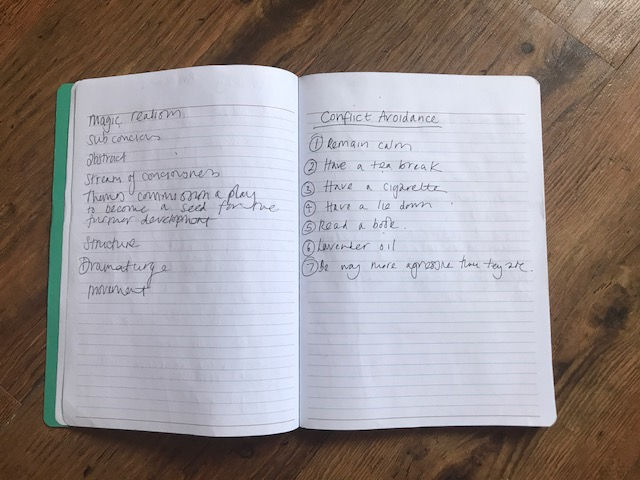 Magic realism
Subconcious
abstract
Stream of conciousness
Themes commission a play
to become a seed for the
further development
Structure
Dramaturge
Movement
Conflict Avoidance
① Remain calm
② Have a tea break
③ Have a cigarette
④ Have a lie down
⑤ Read a book.
⑥ Lavender oil
⑦ Be way more agressive than they are.